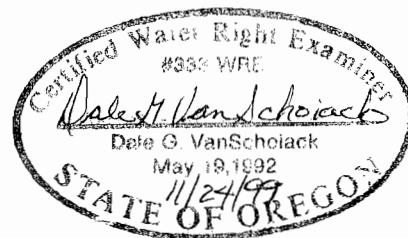 Certified Water Right Examiner
#333 WRE
Dale G. VanSchoiack
Dale G. VanSchoiack
May 19, 1992
11/24/99
STATE OF OREGON